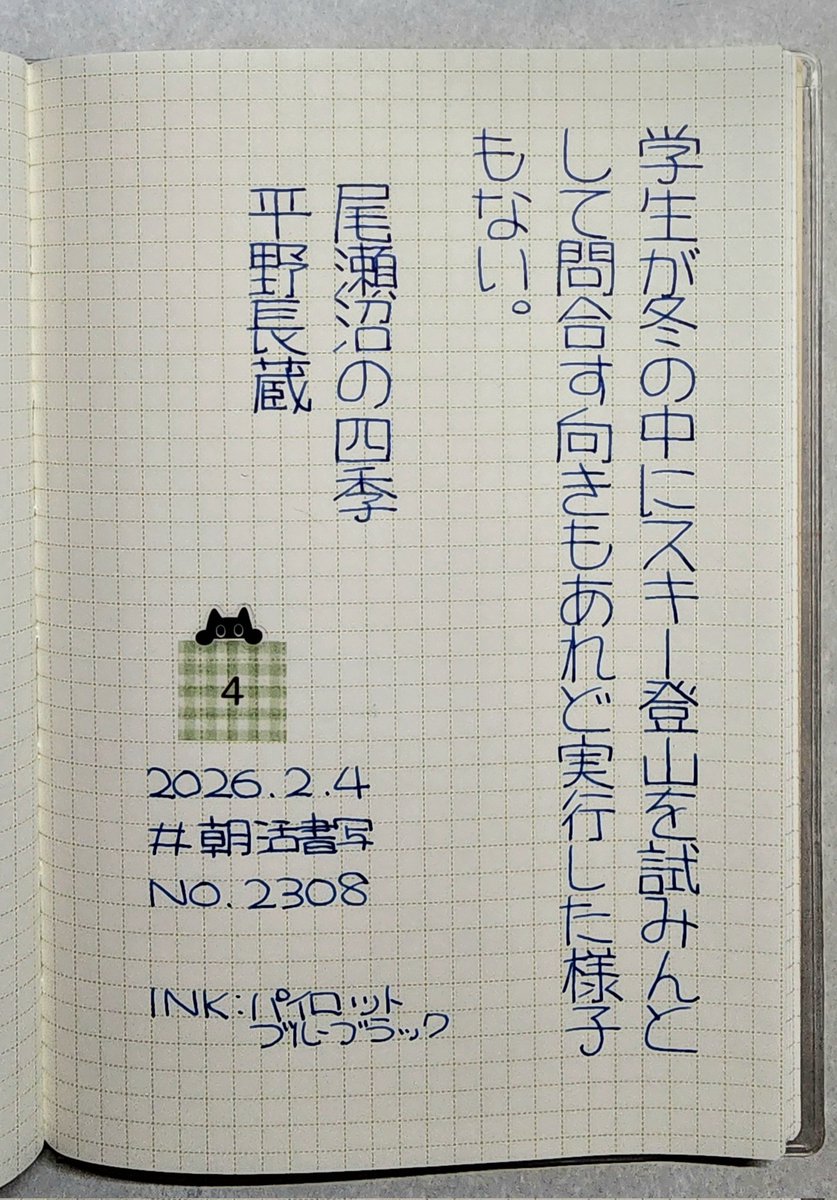 学生が冬の中にスキー登山を試みんと
して問合す向きもあれど実行した様子
もない。
尾瀬沼の四季
平野長蔵
4
2026.2.4
#朝活書写
NO.2308
INK:パイロット
ブルーブラック